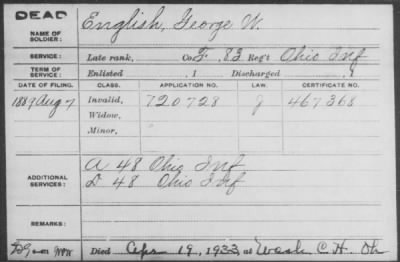 DEAD
NAME OF SOLDIER: English, George W.
SERVICE: Late rank, Co. F. 83 Reg't Ohio Inf
TERM OF SERVICE: Enlisted , 1 Discharged , 1
DATE OF FILING. CLASS. APPLICATION NO. LAW. CERTIFICATE NO.
1889 Aug 7 Invalid, 720728 g 467368
Widow,
Minor,
ADDITIONAL SERVICES: A 48 Ohio Inf
D 48 Ohio Inf
REMARKS:
Died Apr 19, 1933, at Wash C. H. Oh